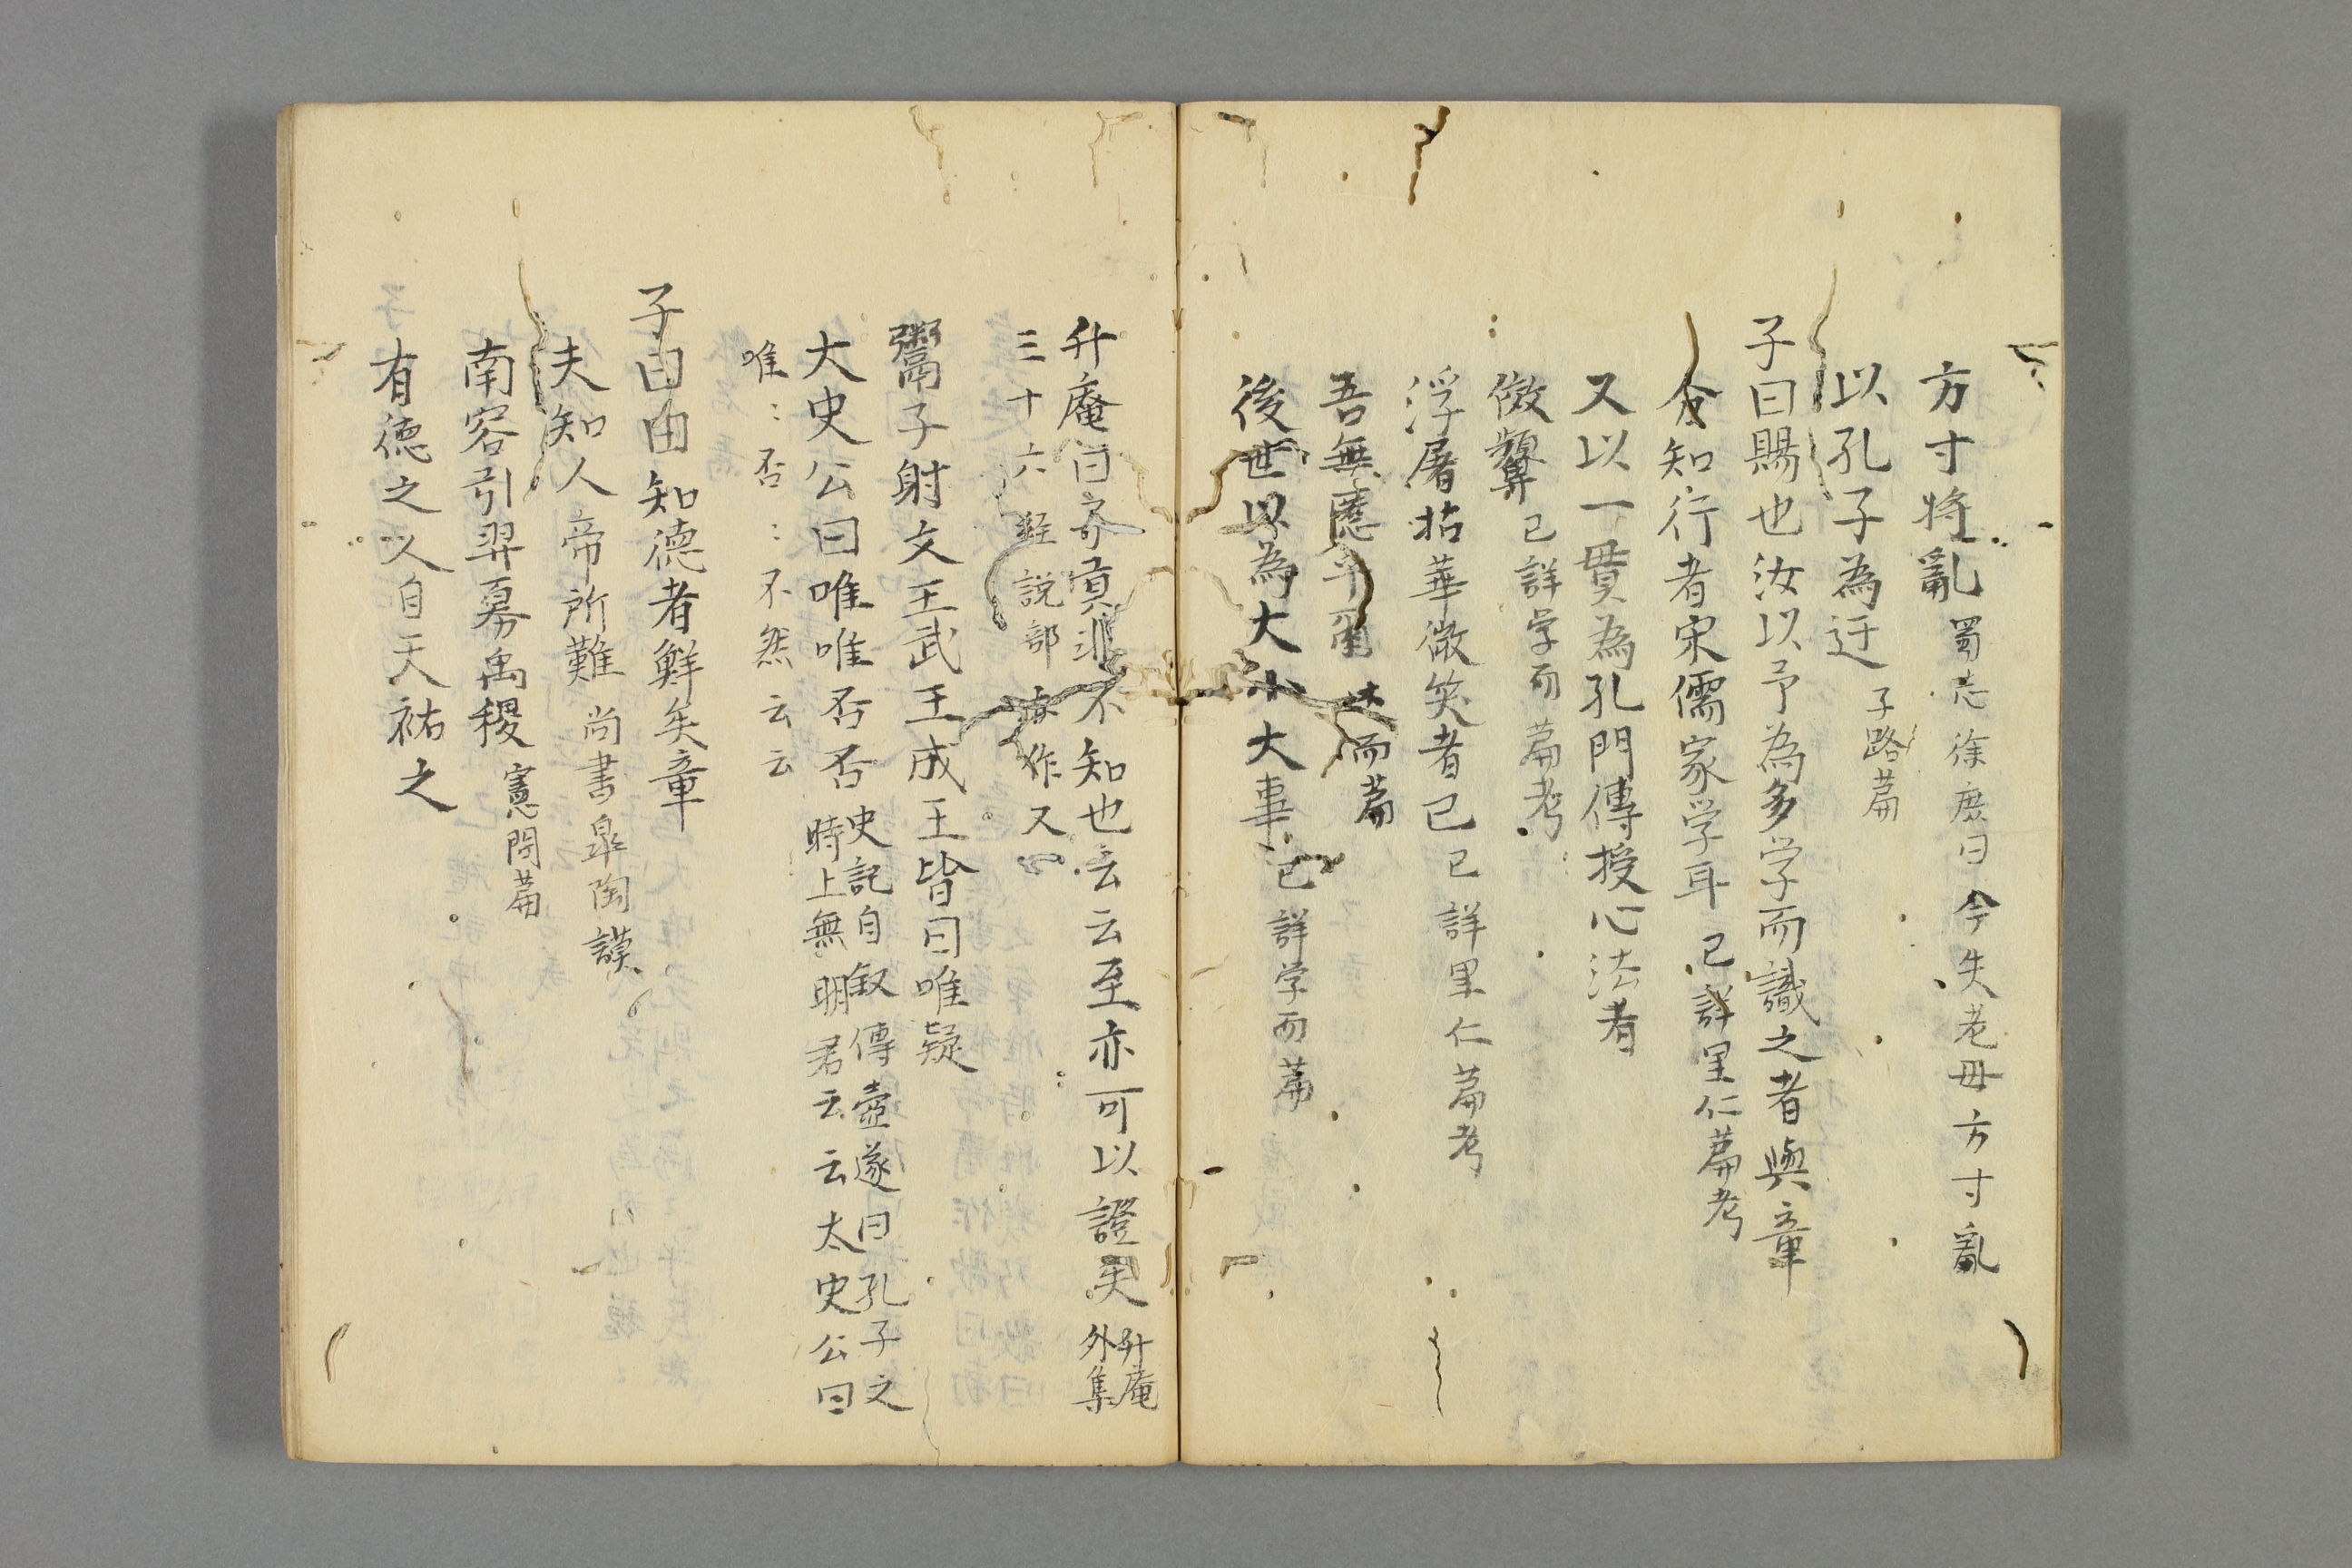 方寸将亂 蜀志徐庶曰今失老母方寸亂
以孔子為迂 子路篇
子曰賜也汝以予為多学而識之者與章
合知行者宋儒家学耳 已詳里仁篇考
又以一貫為孔門傳授心法者
倣顰 已詳学而篇考
浮屠拈華微笑者已 已詳里仁篇考
吾無隱乎爾 述而篇
後世以為大小大事 已詳学而篇
升庵曰斉貢非不知也云云至亦可以證矣 升庵外集
三十六 經説部 亦作又
鬻子射文王武王成王皆曰唯疑
大史公曰唯唯否否 史記自叙傳壺遂曰孔子之時上無明君云云太史公曰
唯〻否〻不然云云
子曰由知德者鮮矣章
夫知人帝所難 尚書皐陶謨
南容引羿奡禹稷 憲問篇
有德之人自天祐之